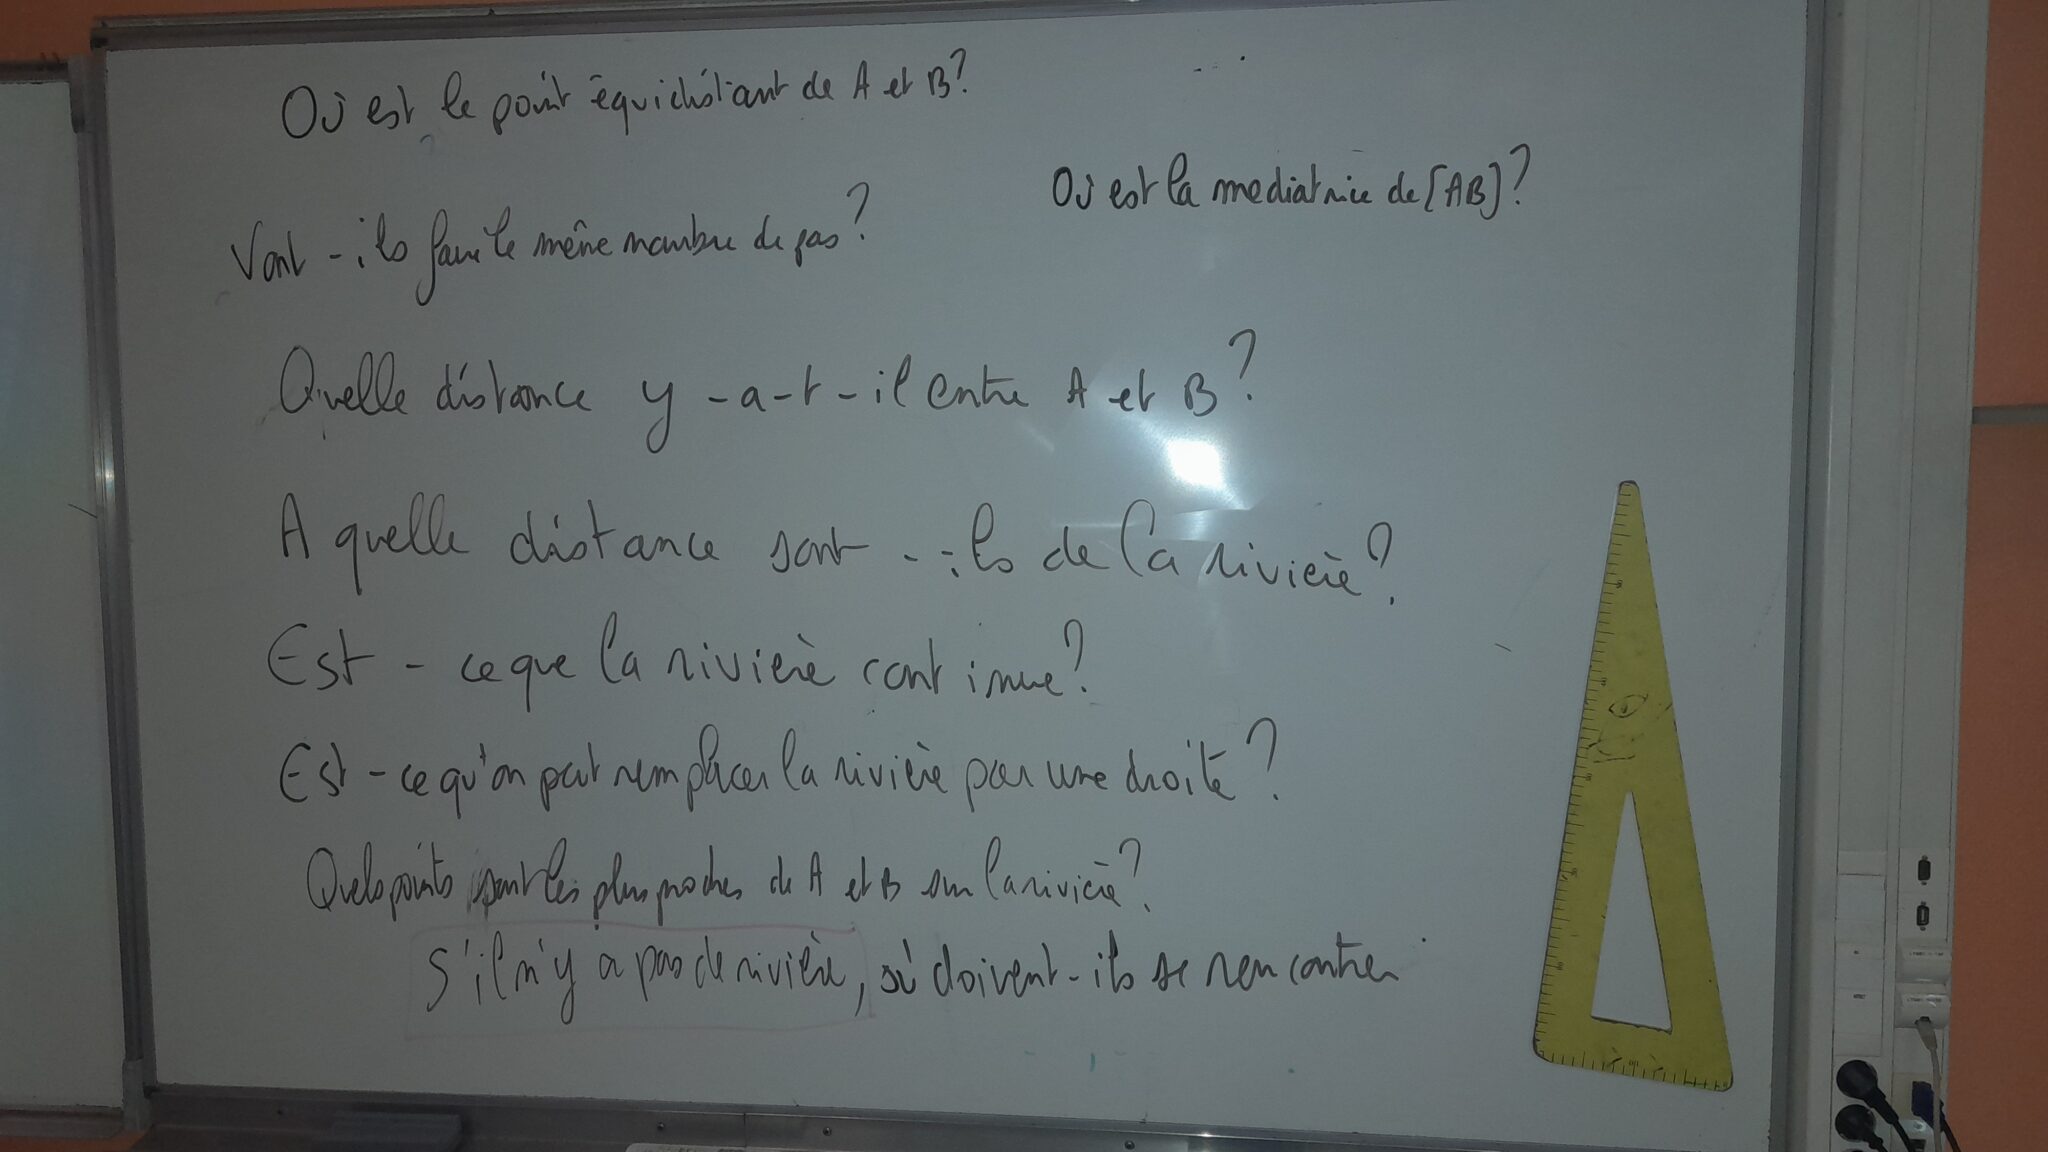 Où est le point équidistant de A et B?
Où est la mediatrice de [AB]?
Vont-ils faire le même nombre de pas?
Quelle distance y-a-t-il entre A et B?
A quelle distance sont-ils de la rivière?
Est-ce que la rivière continue?
Est-ce qu'on peut remplacer la rivière par une droite?
Quels points sont les plus proches de A et B sur la rivière?
S'il n'y a pas de rivière, où doivent-ils se rencontrer